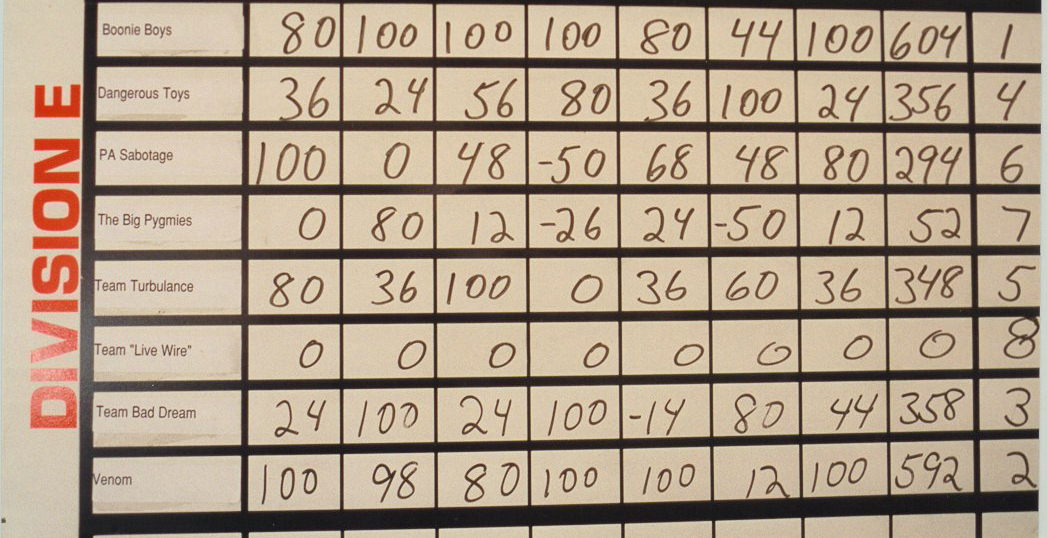 DIVISION E
Boonie Boys 80 100 100 100 80 44 100 604 1
Dangerous Toys 36 24 56 80 36 100 24 356 4
PA Sabotage 100 0 48 -50 68 48 80 294 6
The Big Pygmies 0 80 12 -26 24 -50 12 52 7
Team Turbulance 80 36 100 0 36 60 36 348 5
Team "Live Wire" 0 0 0 0 0 0 0 0 8
Team Bad Dream 24 100 24 100 -14 80 44 358 3
Venom 100 98 80 100 100 12 100 592 2